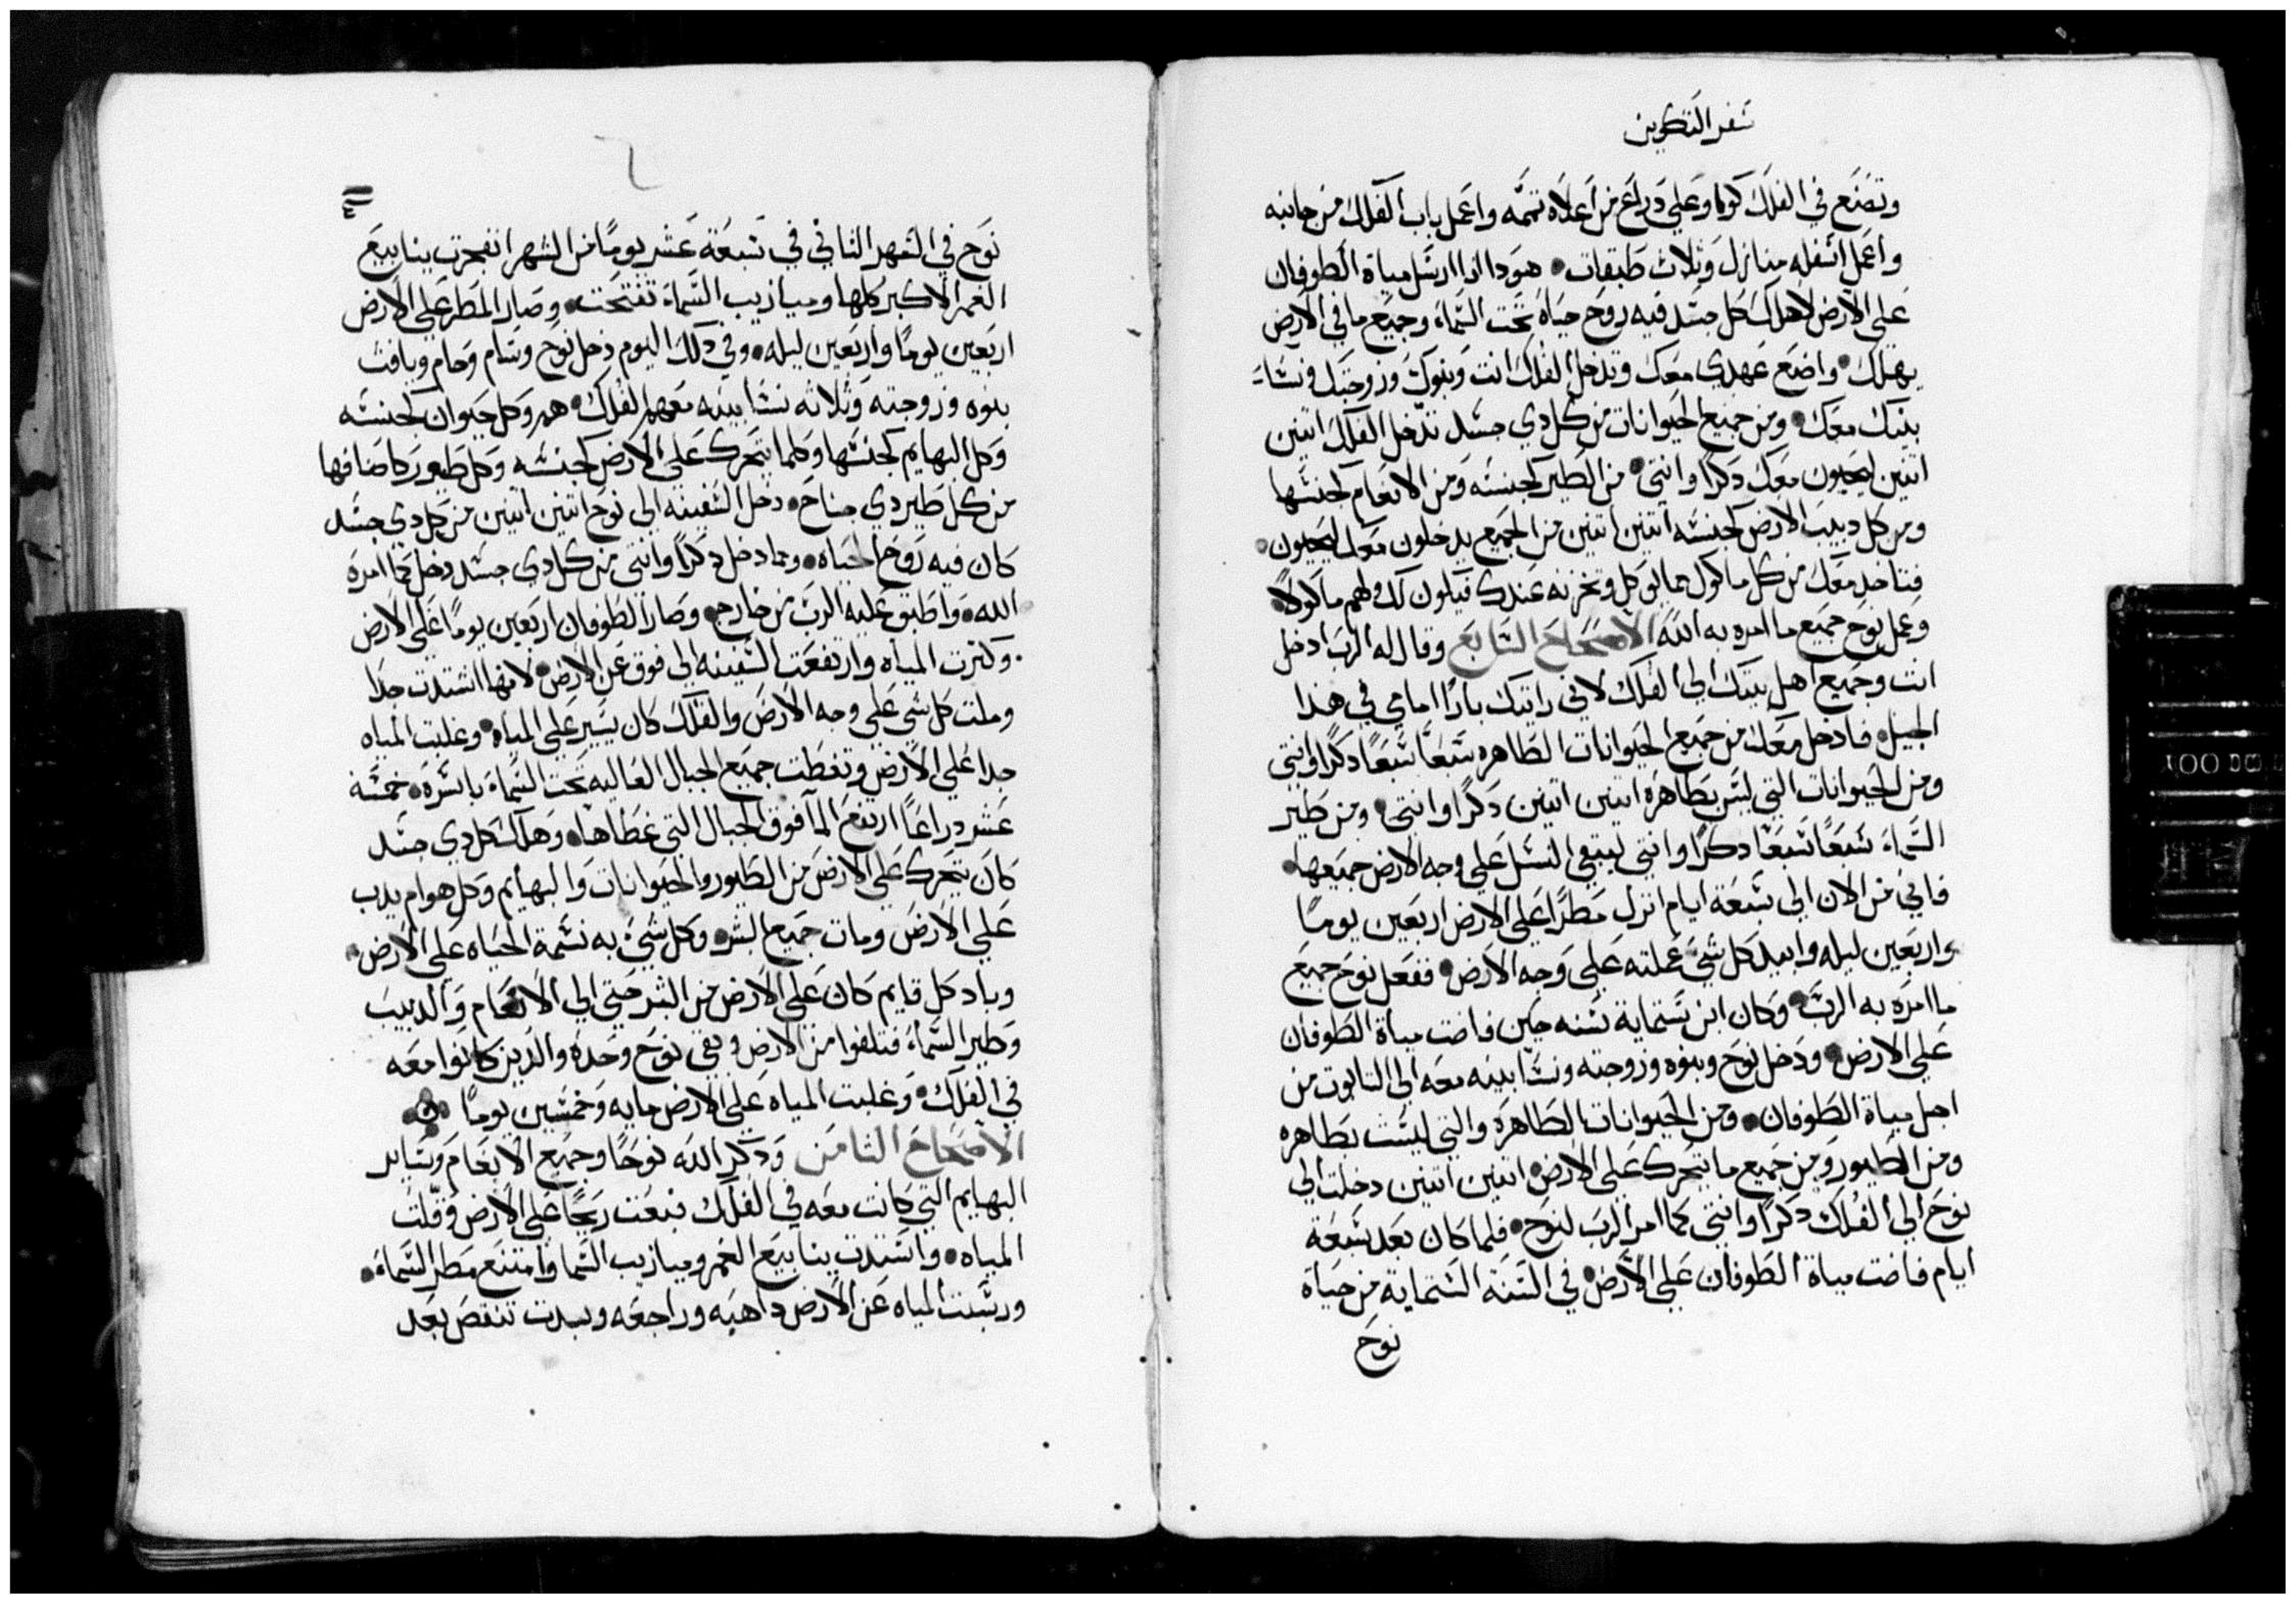 سفر التكوين
وتصنع في الفلك كوا وعلي دراع من اعلاه تتمه واعمل باب الفلك من جانبه
واعمل اسفله منازل وثلاث طبقات هودا انا ارسل مياة الطوفان
علي الارض لاهلك كل جسد فيه روح حياه تحت السماء وجميع ما في الارض
يهلك واضع عهدي معك وتدخل الفلك انت وبنوك وزوجتك ونساء
بنيك معك ومن جميع الحيوانات من كل دي جسد تدخل الفلك اتنين
اتنين ليحيون معك دكرا وانتي من الطير كجنسه ومن الانعام كجنسها
ومن كل دبيب الارض كجنسه اتنين اتنين من الجميع يدخلون معك ليحيون
فتاخد معك من كل ماكول مما يوكل وتخزنه عندك فيكون لك ولهم ماكولا
وعمل نوح جميع ما امره به الله الاصحاح السابع وقال له الرب ادخل
انت وجميع اهل بيتك الي الفلك لاني رايتك بارا امامي في هدا
الجيل فادخل معك من جميع الحيوانات الطاهره سبعا سبعا دكرا وانتي
ومن الحيوانات التي ليس بطاهره اتنين اتنين دكرا وانتي ومن طير
السماء سبعا سبعا دكرا وانتي ليبقي النسل علي وجه الارض جميعها
فاني من الان الي سبعة ايام انزل مطرا علي الارض اربعين يوما
واربعين ليله وابيد كل شي عملته علي وجه الارض ففعل نوح جميع
ما امره به الرب وكان ابن ستماية سنه حين فاضت مياة الطوفان
علي الارض ودخل نوح وبنوه وزوجته ونسا بنيه معه الي التابوت من
اجل مياة الطوفان ومن الحيوانات الطاهره والتي ليست بطاهره
ومن الطيور ومن جميع ما يتحرك علي الارض اتنين اتنين دخلت الي
نوح الي الفلك دكرا وانتي كما امر الرب لنوح فلما كان بعد سبعة
ايام فاضت مياة الطوفان علي الارض في السنه الستماية من حياة
نوح
٤
نوح في الشهر الثاني في سبعة عشر يوما من الشهر انفجرت ينابيع
الغمر الاكبر كلها وميازيب السماء تفتحت وصار المطر علي الارض
اربعين يوما واربعين ليله وفي دلك اليوم دخل نوح وسام وحام ويافث
بنوه وزوجته وثلاثه نسا بنيه معهم الفلك هم وكل حيوان كجنسه
وكل البهايم كجنسها وكلما يتحرك علي الارض كجنسه وكل طيور كاصنافها
من كل طير دي جناح دخل السفينه الي نوح اتنين اتنين من كل دي جسد
كان فيه روح الحياه ومما دخل دكرا وانتي من كل دي جسد دخل كما امره
الله واطبق عليه الرب من خارج وصار الطوفان اربعين يوما علي الارض
وكترت المياه وارتفعت السفينه الي فوق عن الارض لانها اشتدت جدا
وملت كل شي علي وجه الارض والفلك كان يسير علي المياه وغلبت المياه
جدا علي الارض وتغطت جميع الجبال العاليه تحت السماء باسره خمسه
عشر دراعا ارتفع الما فوق الجبال التي غطاها وهلك كل دي جسد
كان يتحرك علي الارض من الطيور والحيوانات والبهايم وكل هوام يدب
علي الارض ومات جميع البشر وكل شي به نسمة الحياه علي الارض
وباد كل قايم كان علي الارض من البشر حتي الي الانعام والدبيب
وطير السماء فتلفوا من الارض وبقي نوح وحده والدين كانوا معه
في الفلك وغلبت المياه علي الارض مايه وخمسين يوما
الاصحاح الثامن ودكر الله نوحا وجميع الانعام وساير
البهايم التي كانت معه في الفلك فبعت ريحا علي الارض وقلت
المياه واستدت ينابيع الغمر وميازيب السما وامتنع مطر السماء
ورسبت المياه عن الارض داهبه وراجعه وبدت تنقص بعد